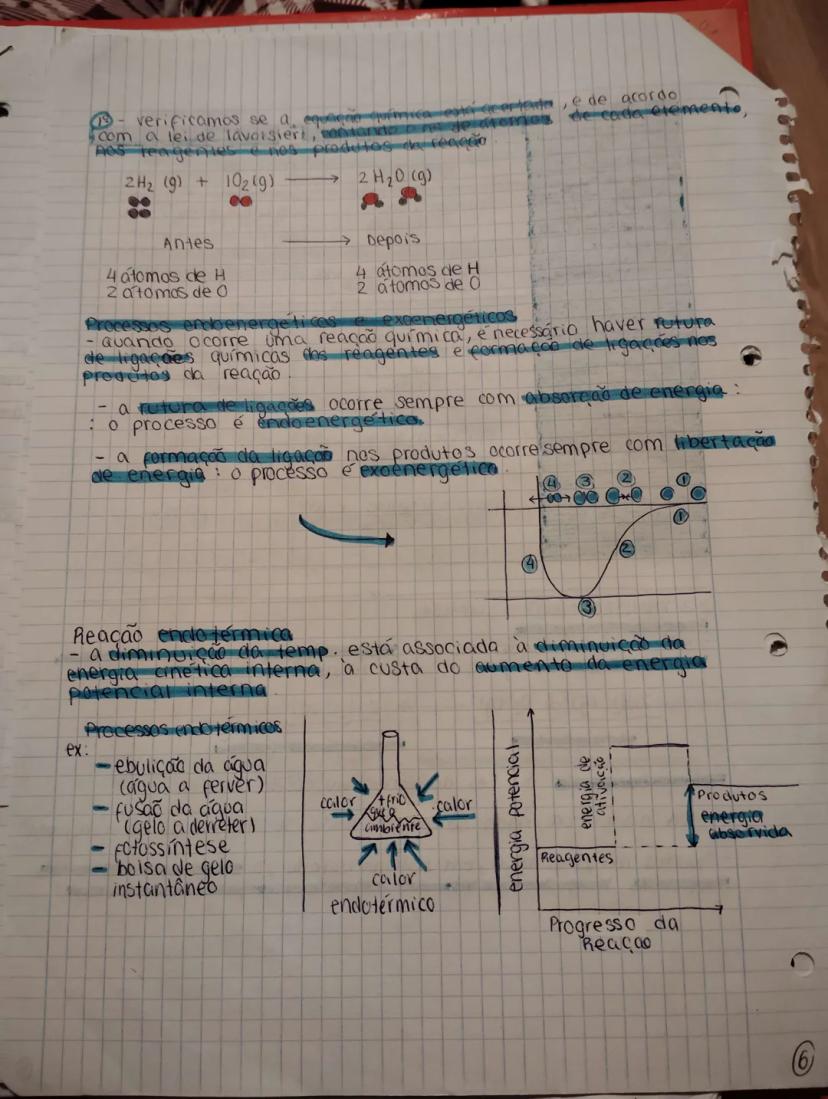 - verificamos se a equação química está acertada, e de acordo
com a lei de lavoisier, contando o no de átomos de cada elemento,
nos reagentes e nos produtos da reação
2H2 (g) + 1O2(g) → 2H2O (g)
Antes → Depois
4 átomos de H
2 átomos de O
4 átomos de H
2 átomos de O
Processos endoenergéticos e exoenergéticos
- quando ocorre uma reação química, é necessário haver rutura
de ligações químicas dos reagentes e formação de ligações nos
produtos da reação.
- a rutura de ligações ocorre sempre com absorção de energia :
: o processo é endoenergético.
- a formação da ligação nos produtos ocorre sempre com libertação
de energia : o processo é exoenergético.
4 3 2 1
1
2
4
3
Reação endotérmica
- a diminuição da temp. está associada à diminuição da
energia cinética interna, à custa do aumento da energia
potencial interna
Processos endotérmicos
ex:
- ebulição da água
(água a ferver)
- fusão da água
(gelo a derreter)
- fotossíntese
- bolsa de gelo
instantâneo
calor
+ frio
que o
ambiente
calor
calor
endotérmico
energia potencial
energia de
ativação
Reagentes
Produtos
energia
absorvida
Progresso da
Reação
6